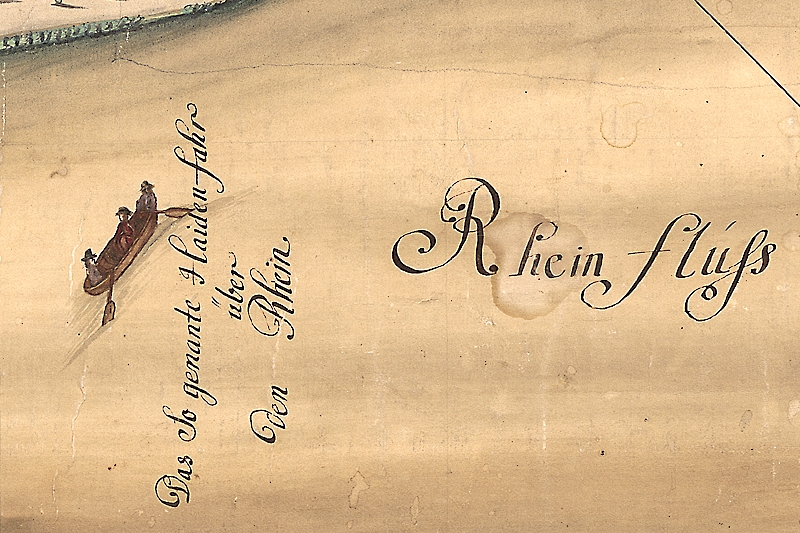 Das So genante Haiden-fahr
über
den Rhein
Rhein flúss